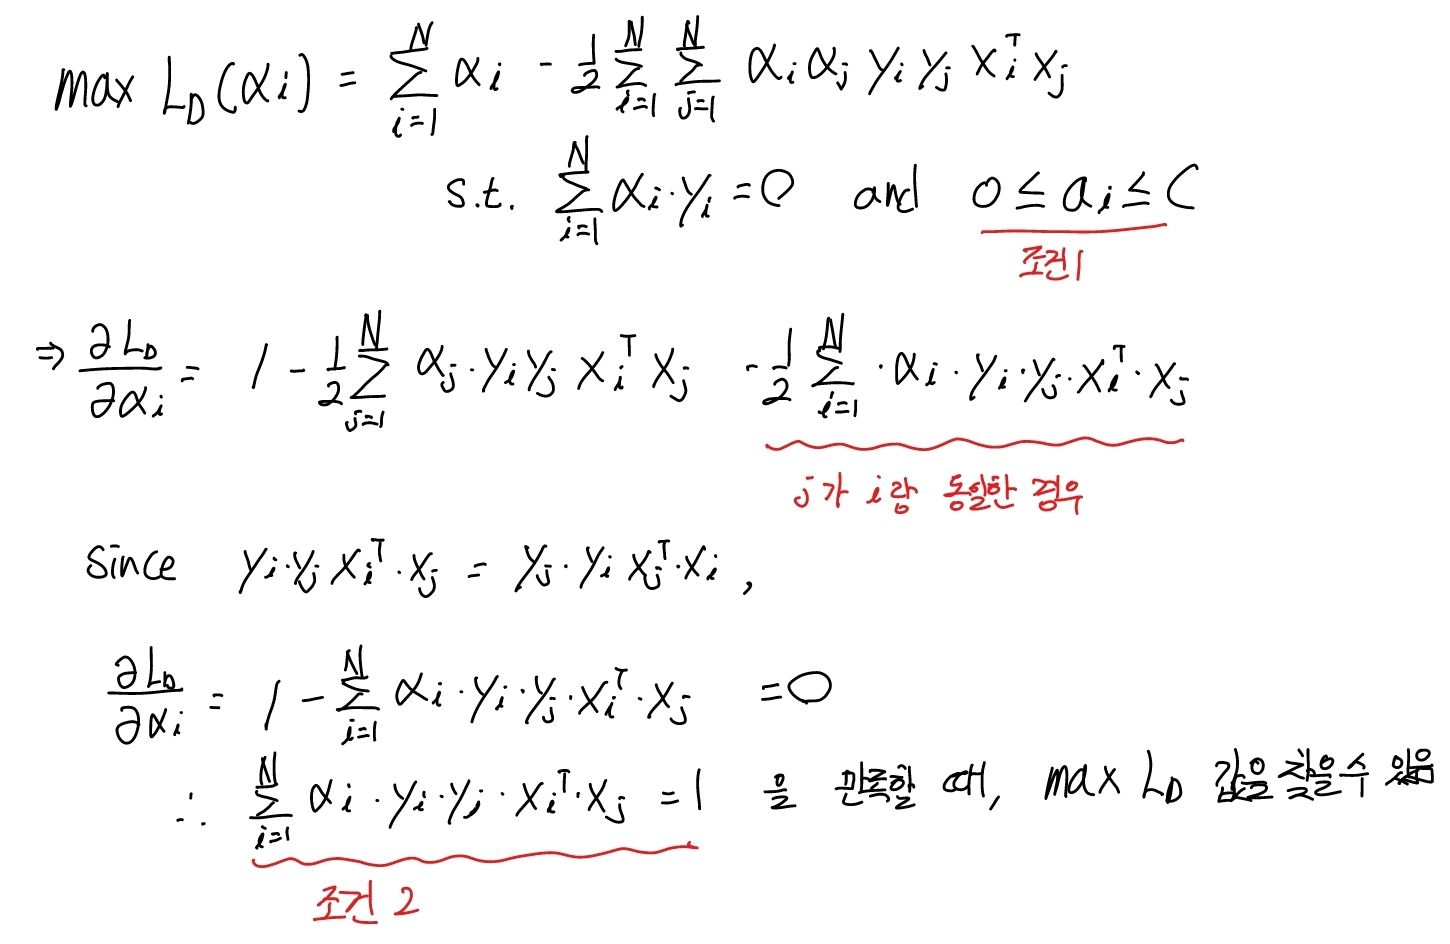 max L_D(αi) = Σ_{i=1}^{N} αi - 1/2 Σ_{i=1}^{N} Σ_{j=1}^{N} αi αj yi yj xi^T xj
s.t. Σ_{i=1}^{N} αi·yi = 0 and 0 ≤ ai ≤ C
조건1
⇒ ∂L_D/∂αi = 1 - 1/2 Σ_{j=1}^{N} αj·yi yj xi^T xj - 1/2 Σ_{i=1}^{N} ·αi·yi·yj·xi^T·xj
j가 i랑 동일한 경우
since yi·yj xi^T·xj = yj·yi xj^T·xi ,
∂L_D/∂αi = 1 - Σ_{i=1}^{N} αi·yi·yj·xi^T·xj = 0
∴ Σ_{i=1}^{N} αi·yi·yj·xi^T·xj = 1 을 만족할 때, max L_D 값을 찾을수 있음
조건 2